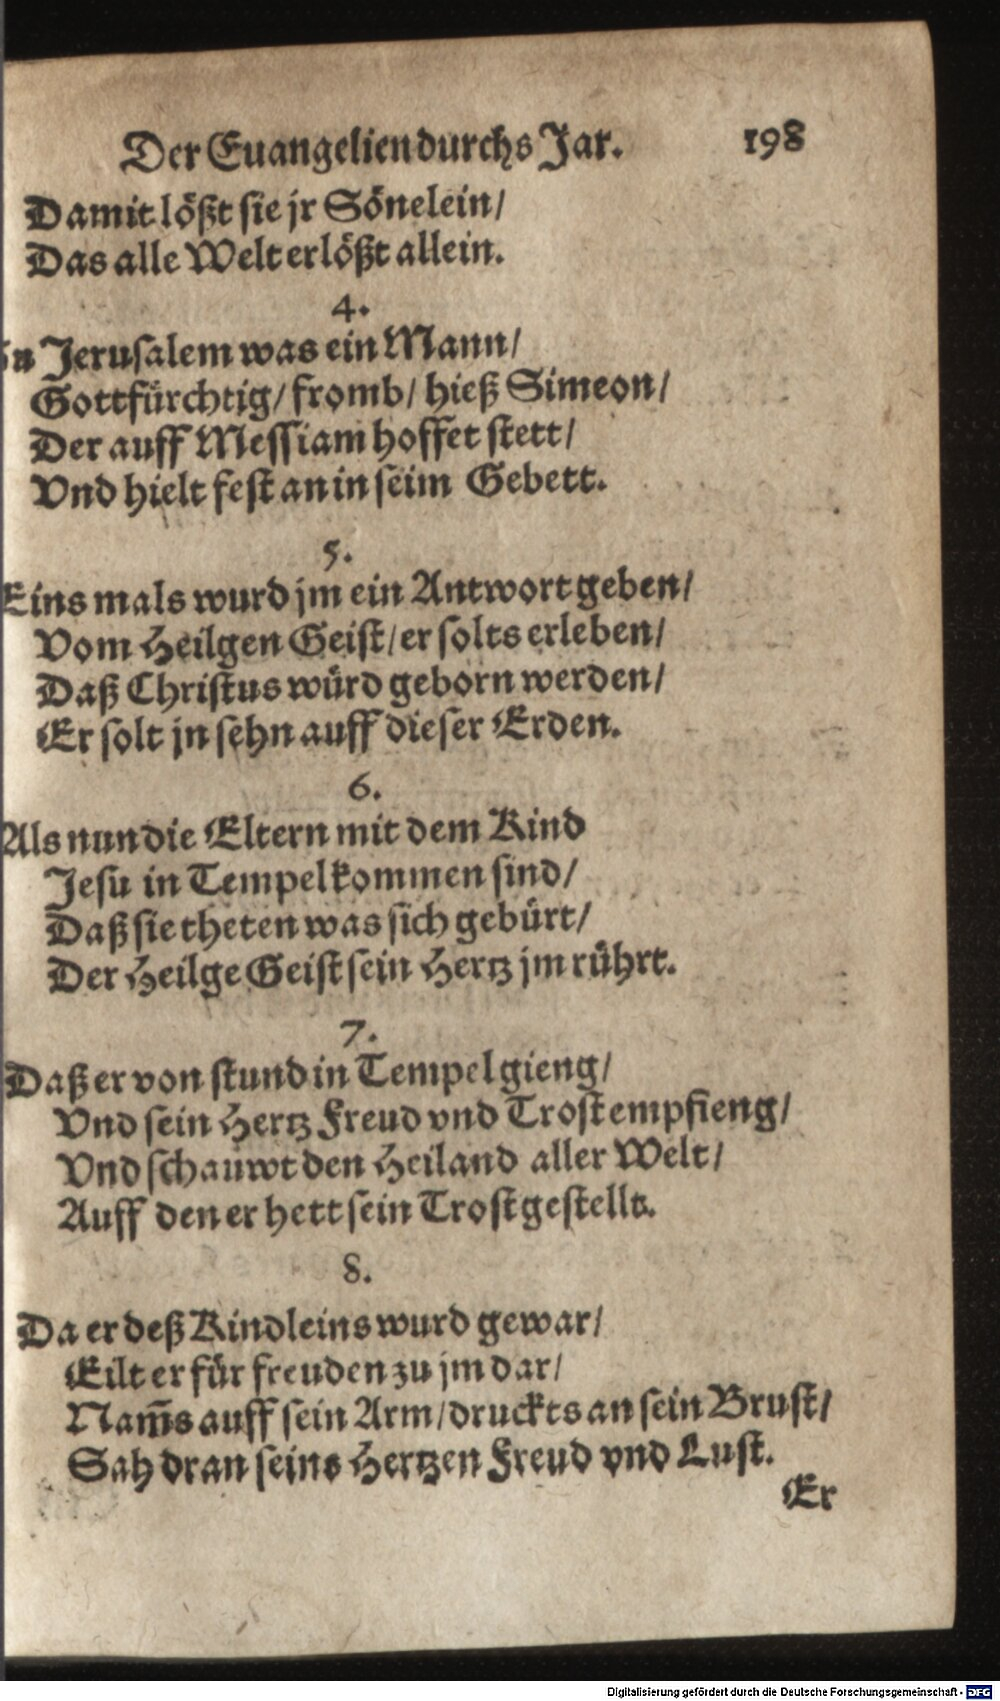 Der Euangelien durchs Jar. 198
Damit lößt sie jr Sönelein/
Das alle Welt erlößt allein.
4.
Zu Jerusalem was ein Mann/
Gottfürchtig/ fromb/ hieß Simeon/
Der auff Messiam hoffet stett/
Vnd hielt fest an in seim Gebett.
5.
Eins mals wurd jm ein Antwort geben/
Vom Heilgen Geist/ er solts erleben/
Daß Christus würd geborn werden/
Er solt jn sehn auff dieser Erden.
6.
Als nun die Eltern mit dem Kind
Jesu in Tempel kommen sind/
Daß sie theten was sich gebürt/
Der Heilge Geist sein Hertz jm rührt.
7.
Daß er von stund in Tempel gieng/
Vnd sein Hertz Freud vnd Trost empfieng/
Vnd schauwt den Heiland aller Welt/
Auff den er hett sein Trost gestellt.
8.
Da er deß Kindleins wurd gewar/
Eilt er für freuden zu jm dar/
Nam̃s auff sein Arm/ druckts an sein Brust/
Sah dran seins Hertzen Freud vnd Lust.
Er
Digitalisierung gefördert durch die Deutsche Forschungsgemeinschaft - DFG